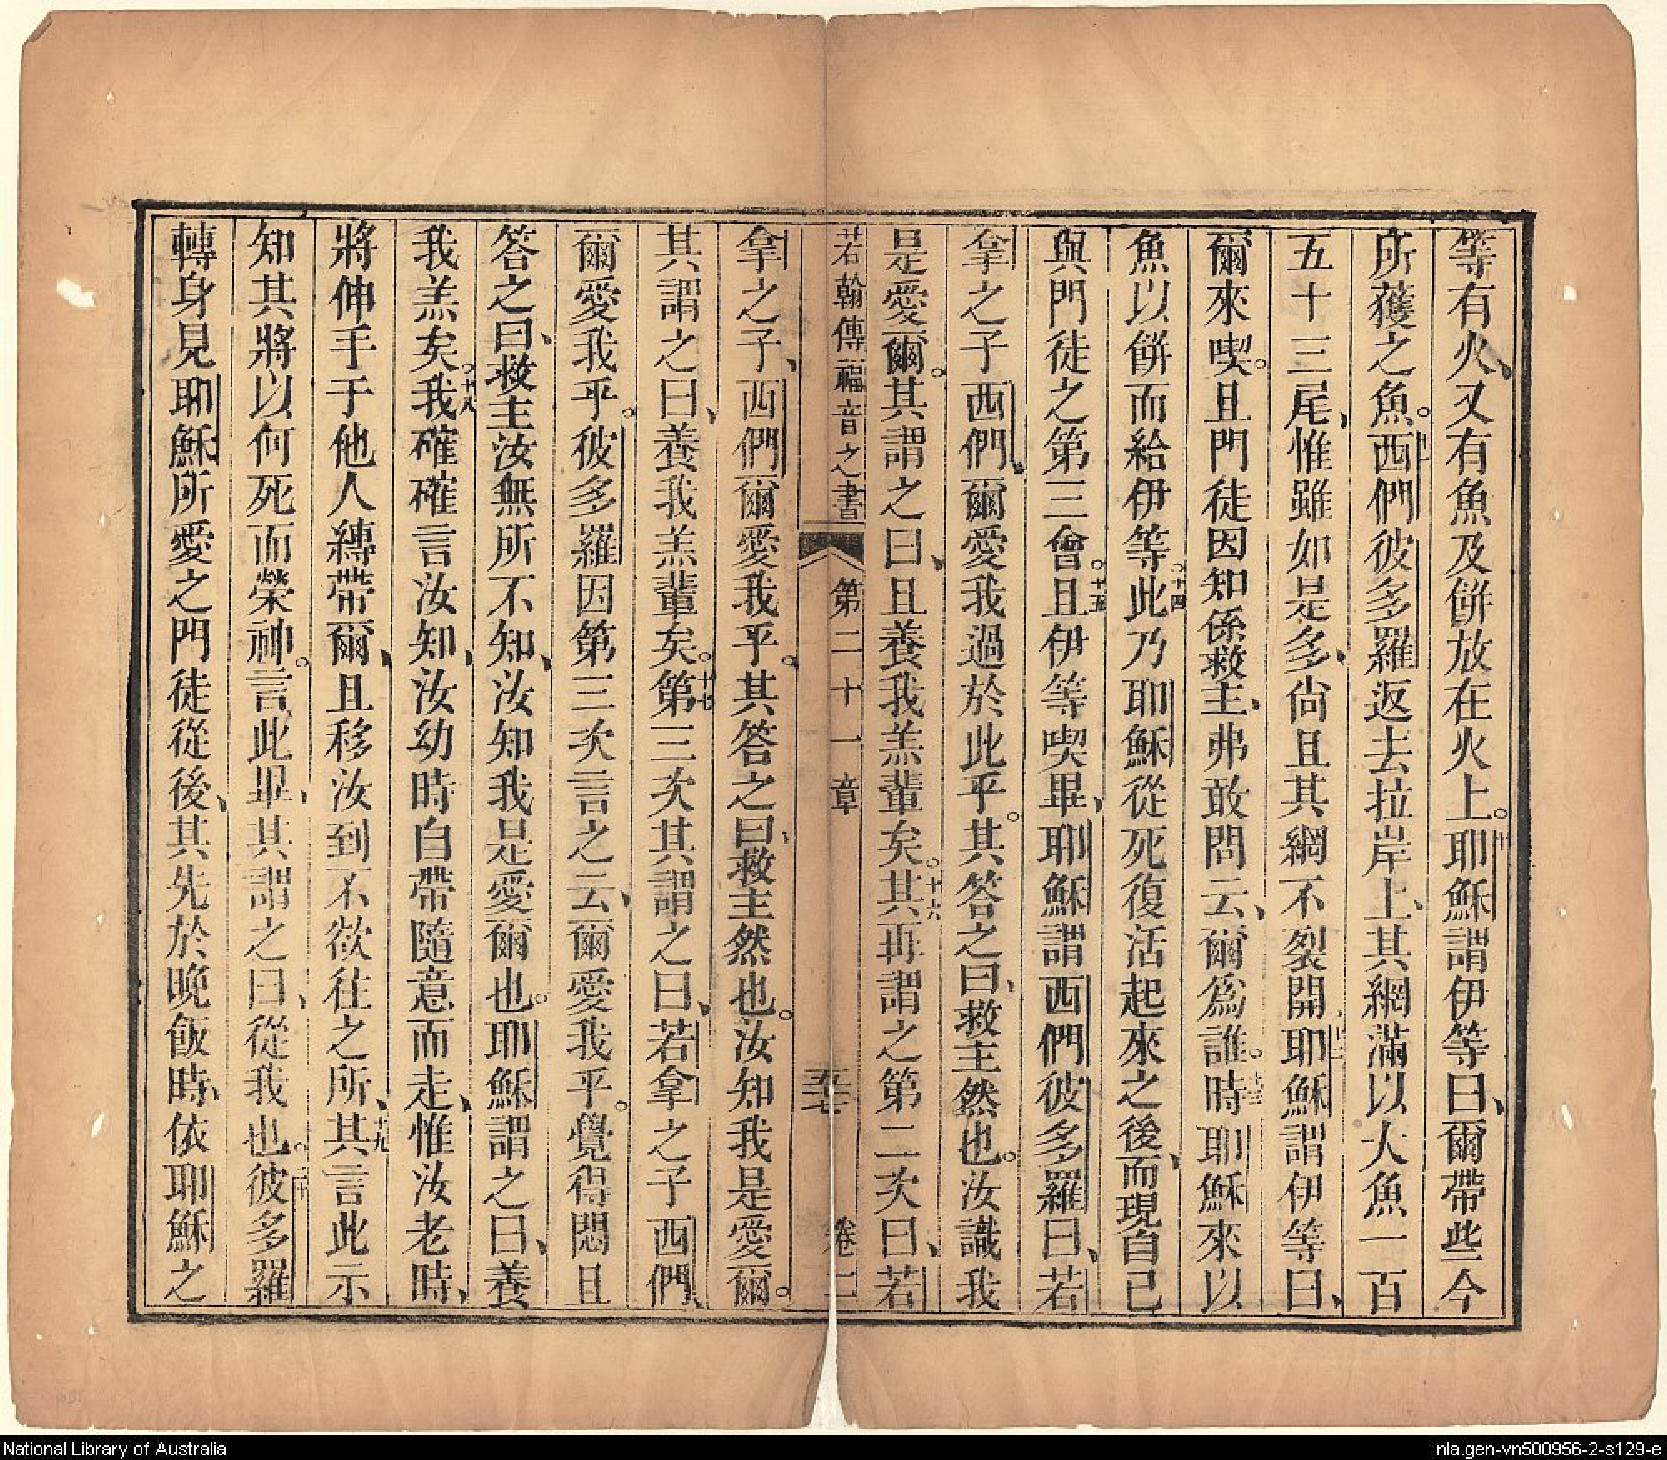 等有火、又有魚及餅放在火上。十耶穌謂伊等曰、爾帶些今
所獲之魚。十一西們彼多羅返去拉岸上、其網滿以大魚一百
五十三尾、惟雖如是多、尚且其網不裂開、十二耶穌謂伊等曰、
爾來喫。且門徒因知係救主、弗敢問云、爾為誰。十三時耶穌來以
魚以餅而給伊等。十四此乃耶穌從死復活起來之後、而現自己
與門徒之第三會。十五且伊等喫畢、耶穌謂西們彼多羅曰、若
拿之子西們、爾愛我過於此乎。其答之曰、救主然也。汝識我
是愛爾。其謂之曰、且養我羔輩矣。十六其再謂之第二次曰、若
若翰傳福音之書 第二十一章 五十七 卷二
拿之子、西們爾愛我乎。其答之曰、救主然也。汝知我是愛爾。
其謂之曰、養我羔輩矣。十七第三次其謂之曰、若拿之子西們、
爾愛我乎。彼多羅因第三次言之云、爾愛我乎。覺得悶且
答之曰、救主汝無所不知、汝知我是愛爾也。耶穌謂之曰、養
我羔矣。十八我確確言汝知、汝幼時自帶隨意而走、惟汝老時、
將伸手于他人縛帶爾、且移汝到不欲往之所、十九其言此示
知其將以何死而榮神。言此畢、其謂之曰、從我也。二十彼多羅
轉身見耶穌所愛之門徒從後、其先於晚飯時、依耶穌之
National Library of Australia
nla.gen-vn500956-2-s129-e